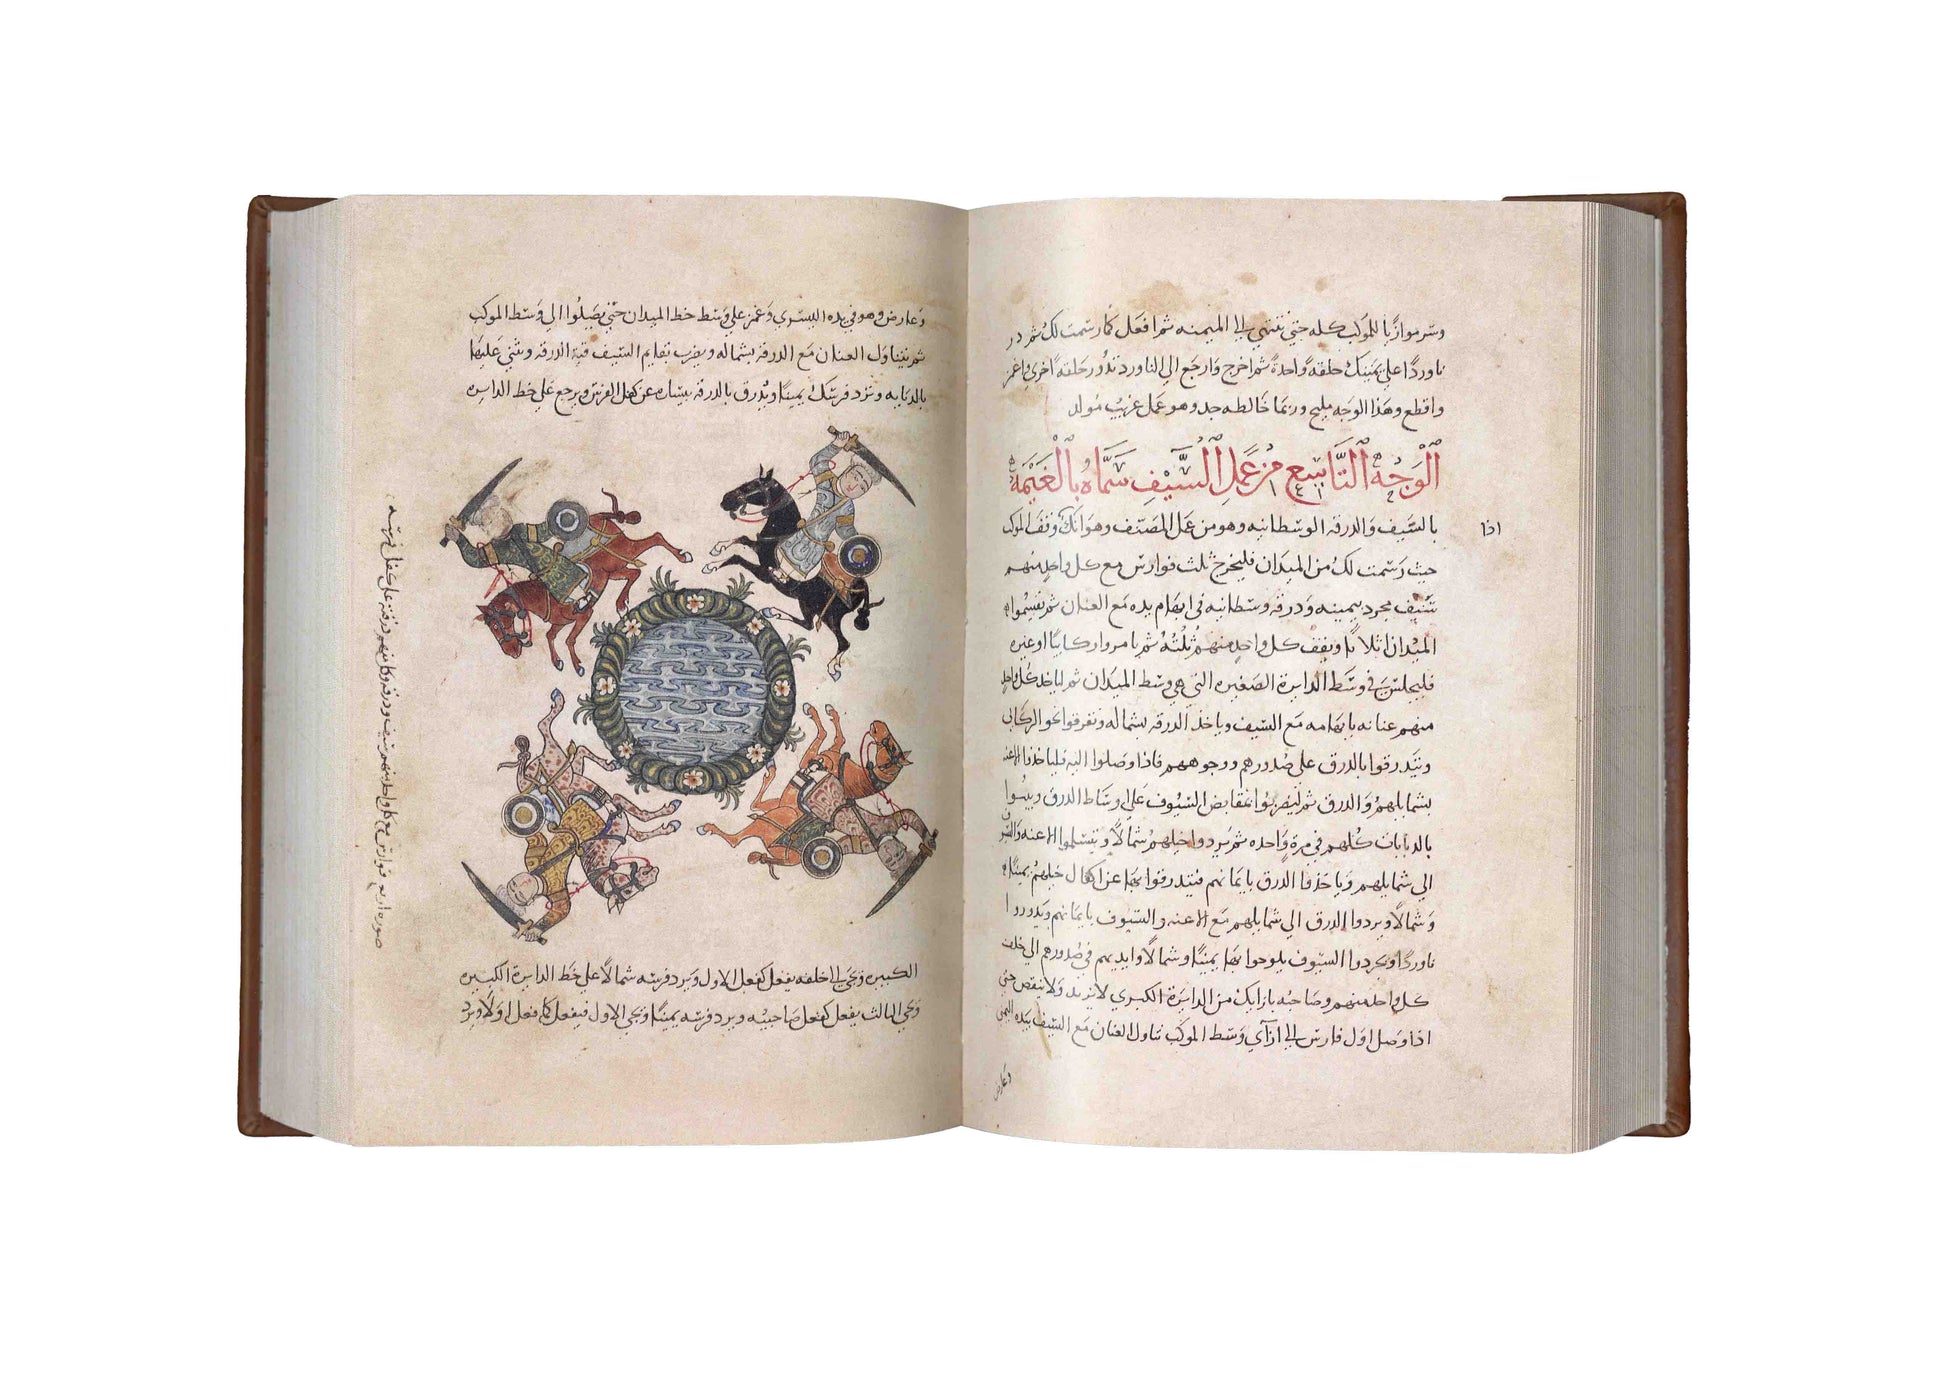 وسر موازيًا للموكب كله حتى تنتهي الى الميمنه ثم افعل كما رسمت لك ثم در
ناوردًا على يمينك حلقه واحدة ثم اخرج وارجع الي الناورد تدور حلقه اخرى واغمز
واقطع وهذا الوجه مليح وربما خالطه جد وهو عمل غريب مولد
الوجه التاسع من عمل السيف سماه بالغيمه
بالسيف والدرقه الوسطانيه وهو من عمل المصنف وهو انك وقف الموكب
اذا
حيث رسمت لك من الميدان فليخرج ثلث فوارس مع كل واحد منهم
سيف مجرد بيمينه ودرقه وسطانيه في ابهام يده مع العنان ثم تقسموا
الميدان اثلاثا ويقف كل واحد منهم ثلثه ثم يامروا ركابيا او غيره
فليجلس في وسط الدايرة الصغيره التي هي وسط الميدان ثم لياخذ كل واحد
منهم عنانه بابهامه مع السيف وياخذ الدرقه بشماله وتفرقوا نحو الركابى
ويتدرقوا بالدرق على صدورهم ووجوههم فاذا وصلوا اليه فلياخذوا الاعنه
بشمايلهم والدرق ثم ليضربوا بمقابض السيوف على اوساط الدرق
بالدبابات كلهم في مرة واحده ثم يردوا خيلهم شمالًا
الي شمايلهم وياخذوا الدرق بايمانهم فيتدرقوا بها عن اكفال خيلهم يمينًا
وشمالًا ويردوا الدرق الي شمايلهم مع الاعنه والسيوف بايمانهم ويدوروا
ناوردًا ويجردوا السيوف يلوحوا بها يمينًا وشمالًا وايديهم في صدورهم الي خلف
كل واحد منهم وصاحبه بازايك من الدايرة الكبرى لا تزيد ولا تنقص حتى
اذا وصل اول فارس الى ازآي وسط الموكب تناول العنان مع السيف بيده اليمنى
وعارض
وعارض وهو في يده اليسري وغمز علي وسط خط الميدان حتى يصلوا الي وسط الموكب
ثم يتناول العنان مع الدرقه بشماله ويضرب بقايم السيف قبة الدرقه وثنى عليها
بالدبابه وترد فرسك يمينًا ويدرق بالدرقه بيساره عن كفل الفرس ويرجع على خط الدايره
صوره اربع فوارس مع كل واحد منهم سيف ودرقه وكل منهم درقته على كفل فرسه
الكبيره ويجي الى خلفه يفعل كفعل الاول ويرد فرسه شمالًا على خط الدايرة الكبيره
ويجي الثالث يفعل كفعل صاحبيه ويرد فرسه يمينًا ويجي الاول فيفعل كما فعل اولا ويرد